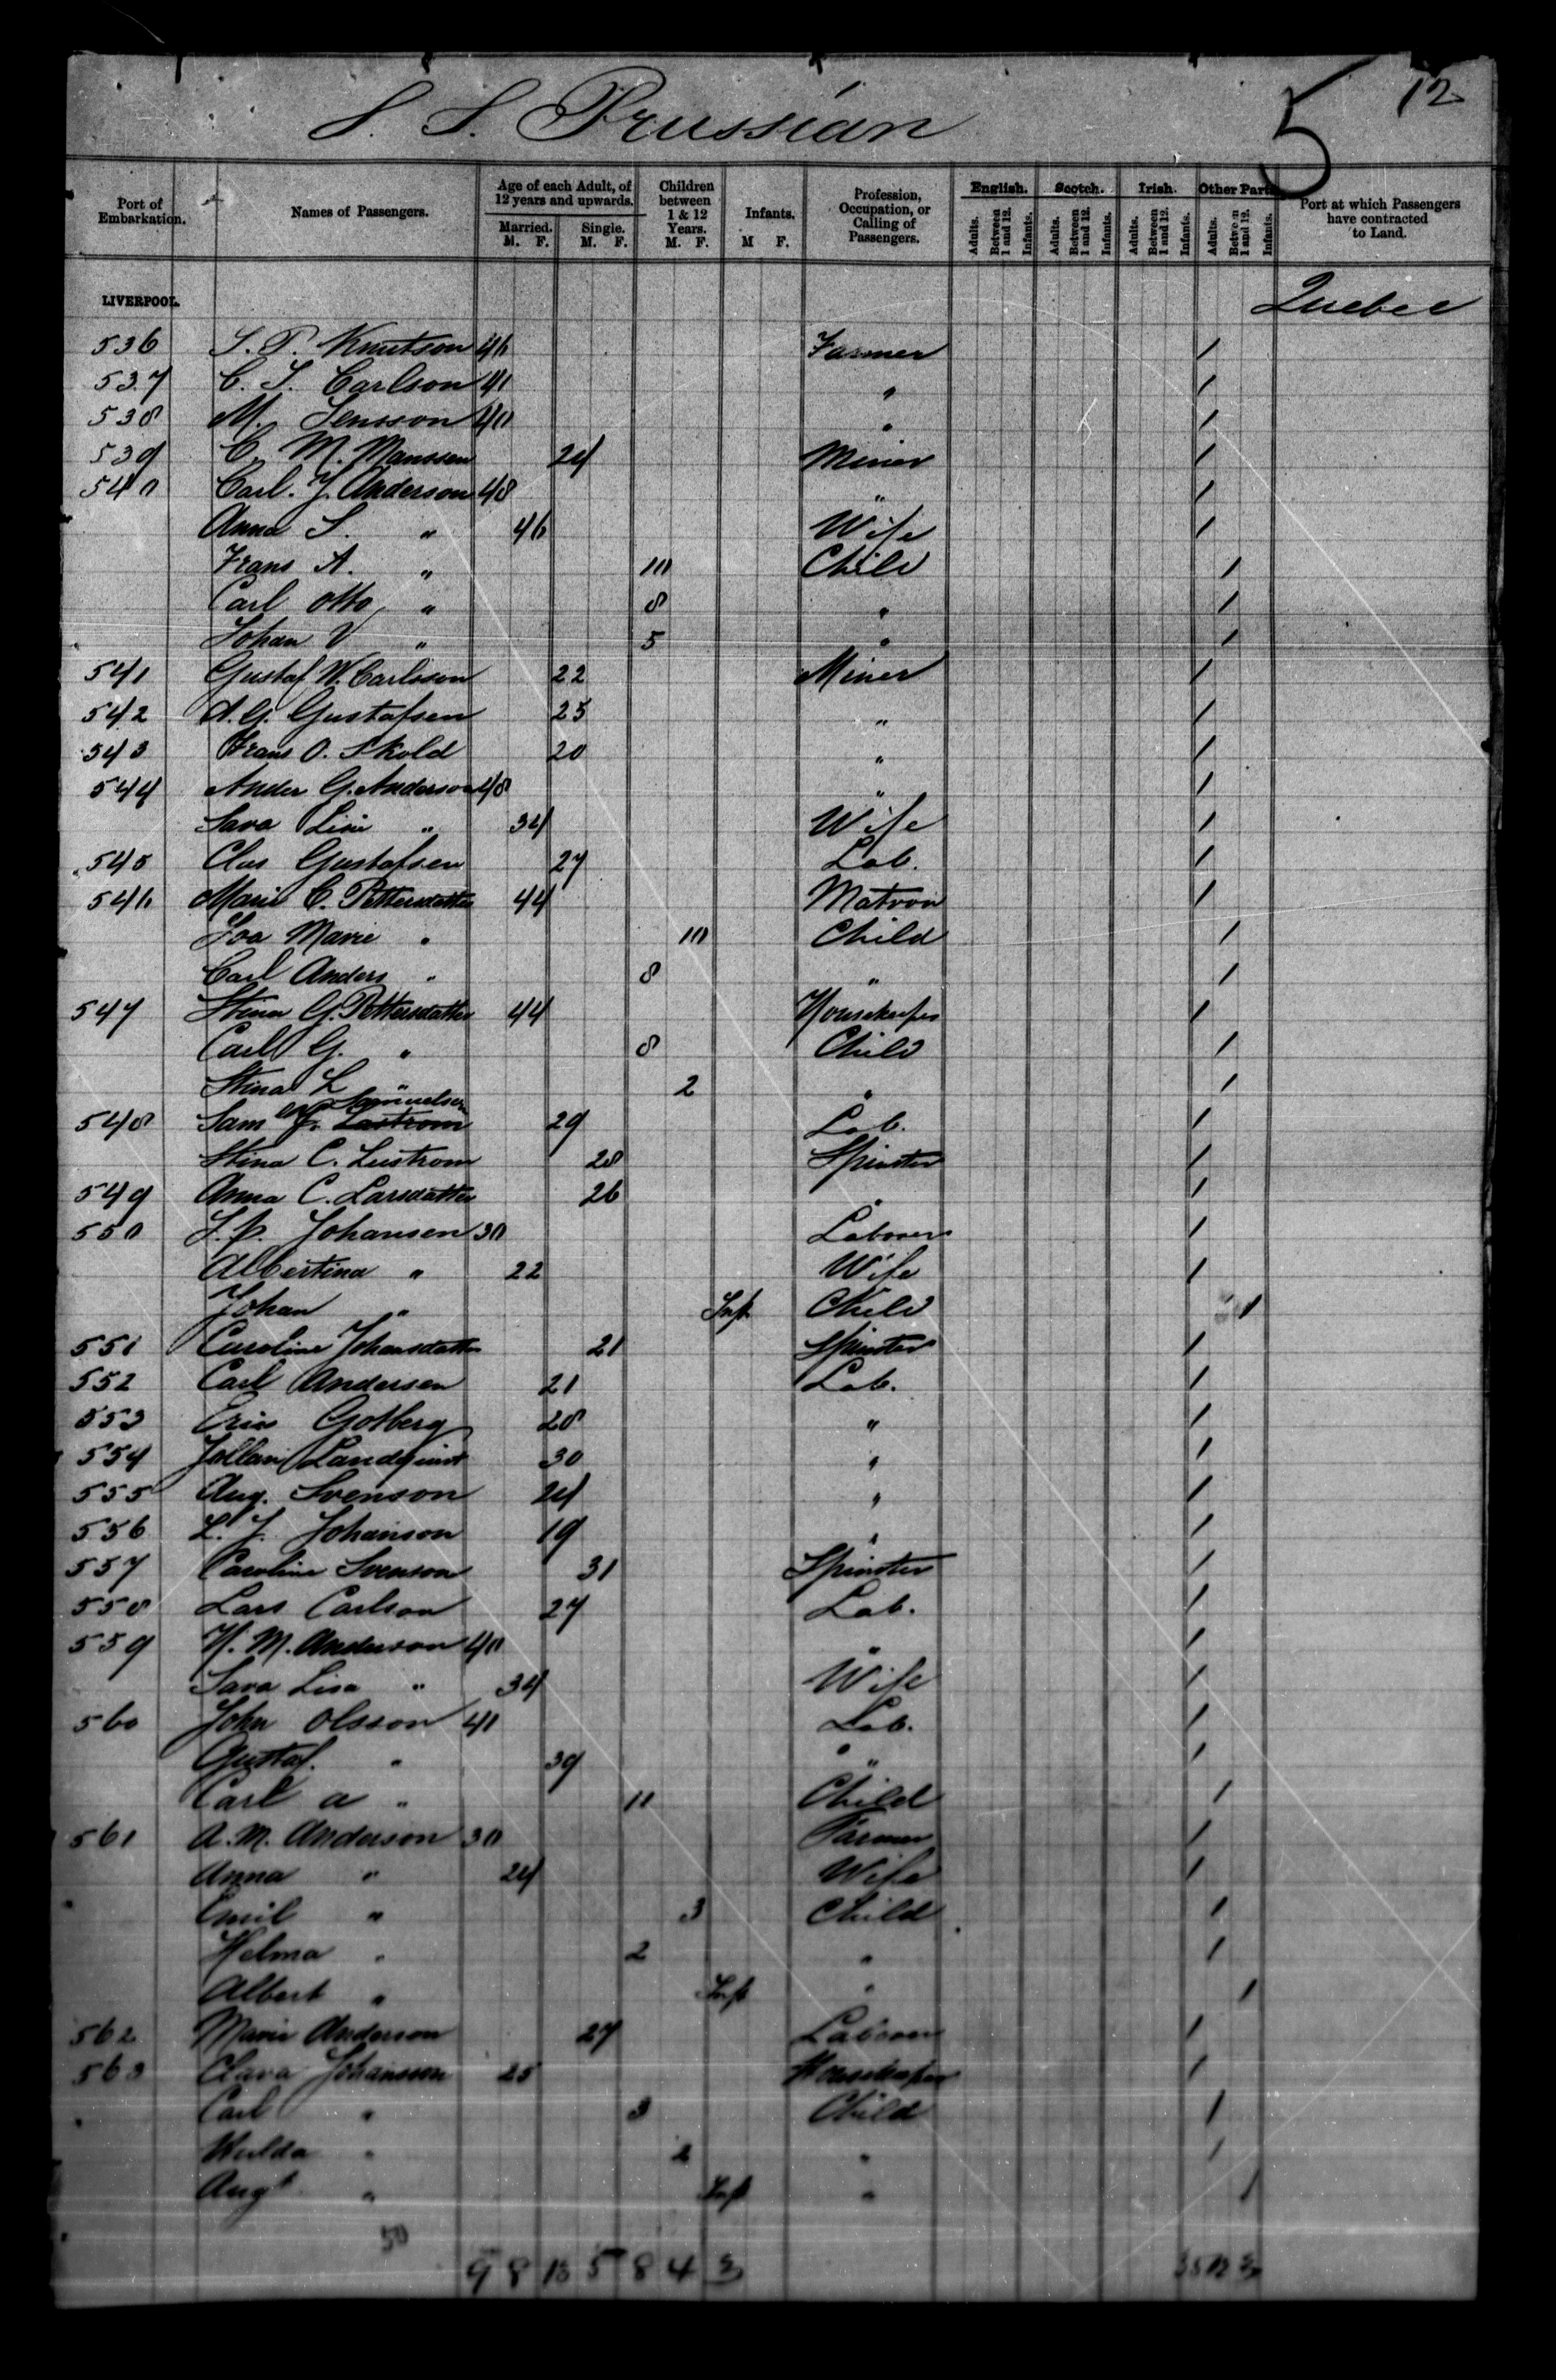 S. S. Prussian
5
12
Port of Embarkation.
Names of Passengers.
Age of each Adult, of 12 years and upwards.
Married. M. F.
Single. M. F.
Children between 1 & 12 Years. M. F.
Infants. M F.
Profession, Occupation, or Calling of Passengers.
English. Adults. Between 1 and 12. Infants.
Scotch. Adults. Between 1 and 12. Infants.
Irish. Adults. Between 1 and 12. Infants.
Other Parts Adults. Between 1 and 12. Infants.
Port at which Passengers have contracted to Land.
LIVERPOOL. Quebec
536 S. P. Knutson 46 Farmer /
537 C. J. Carlson 41 " /
538 M. Jensson 40 " /
539 C. M. Manssen 24 Miner /
540 Carl. J. Anderson 48 " /
Anna S. " 46 Wife /
Frans A. " 10 Child /
Carl Otto " 8 " /
Johan V " 5 " /
541 Gustaf W. Carlsson 22 Miner /
542 A. G. Gustafsen 25 " /
543 Frans O. Skold 20 " /
544 Ander G. Anderson 48 " /
Sava Lisa " 34 Wife /
545 Clas Gustafsen 27 Lab. /
546 Marie C. Pettersdatter 44 Matron /
Marie " 10 Child /
Carl Anders " 8 " /
547 Stina G. Pettersdatter 44 Housekeeper /
Carl G. " 8 Child /
Stina L " 2 " /
548 Sam Samuelsen 29 Lab. /
Stina C. Lustrom 28 Spinster /
549 Anna C. Larsdatter 26 " /
550 J. P. Johansen 30 Labourer /
Albertina " 22 Wife /
Johan " Inft Child /
551 Caroline Johansdatter 21 Spinster /
552 Carl Andersen 21 Lab. /
553 Eric Gotberg 28 " /
554 Landquist 30 " /
555 Aug. Svenson 24 " /
556 L. J. Johanson 19 " /
557 Caroline Svenson 31 Spinster /
558 Lars Carlson 27 Lab. /
559 H. M. Anderson 40 " /
Sava Lisa " 34 Wife /
560 John Olsson 41 Lab. /
Gustaf. " 39 " /
Carl A " 11 Child /
561 A. M. Anderson 30 Farmer /
Anna " 24 Wife /
Emil " 3 Child /
Helma " 2 " /
Albert " Inft " /
562 Marie Anderson 27 Labourer /
563 Clara Johansson 25 Housekeeper /
Carl " 3 Child /
Hulda " 2 " /
Augt " Inft " /
50
9 8 13 5 8 4 3 35 12 3